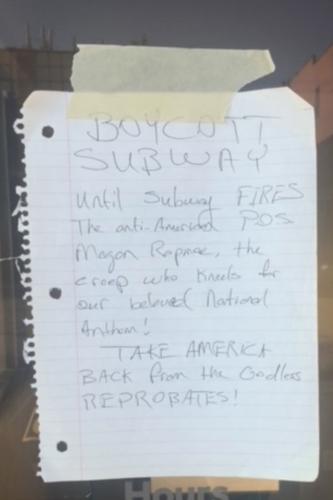 BOYCOTT
SUBWAY
Until Subway FIRES
The anti-American POS
Megan Rapinoe, the
creep who kneels for
our beloved National
Anthem!
TAKE AMERICA
BACK from the Godless
REPROBATES!
Hours